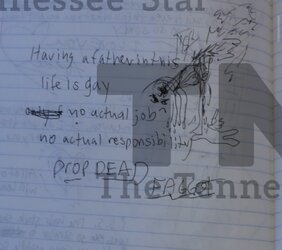 nnessee Star
Having a father in this
life is gay
no actual job
no actual responsibility
DROP DEAD
FAGGOT
TN
The Tenne